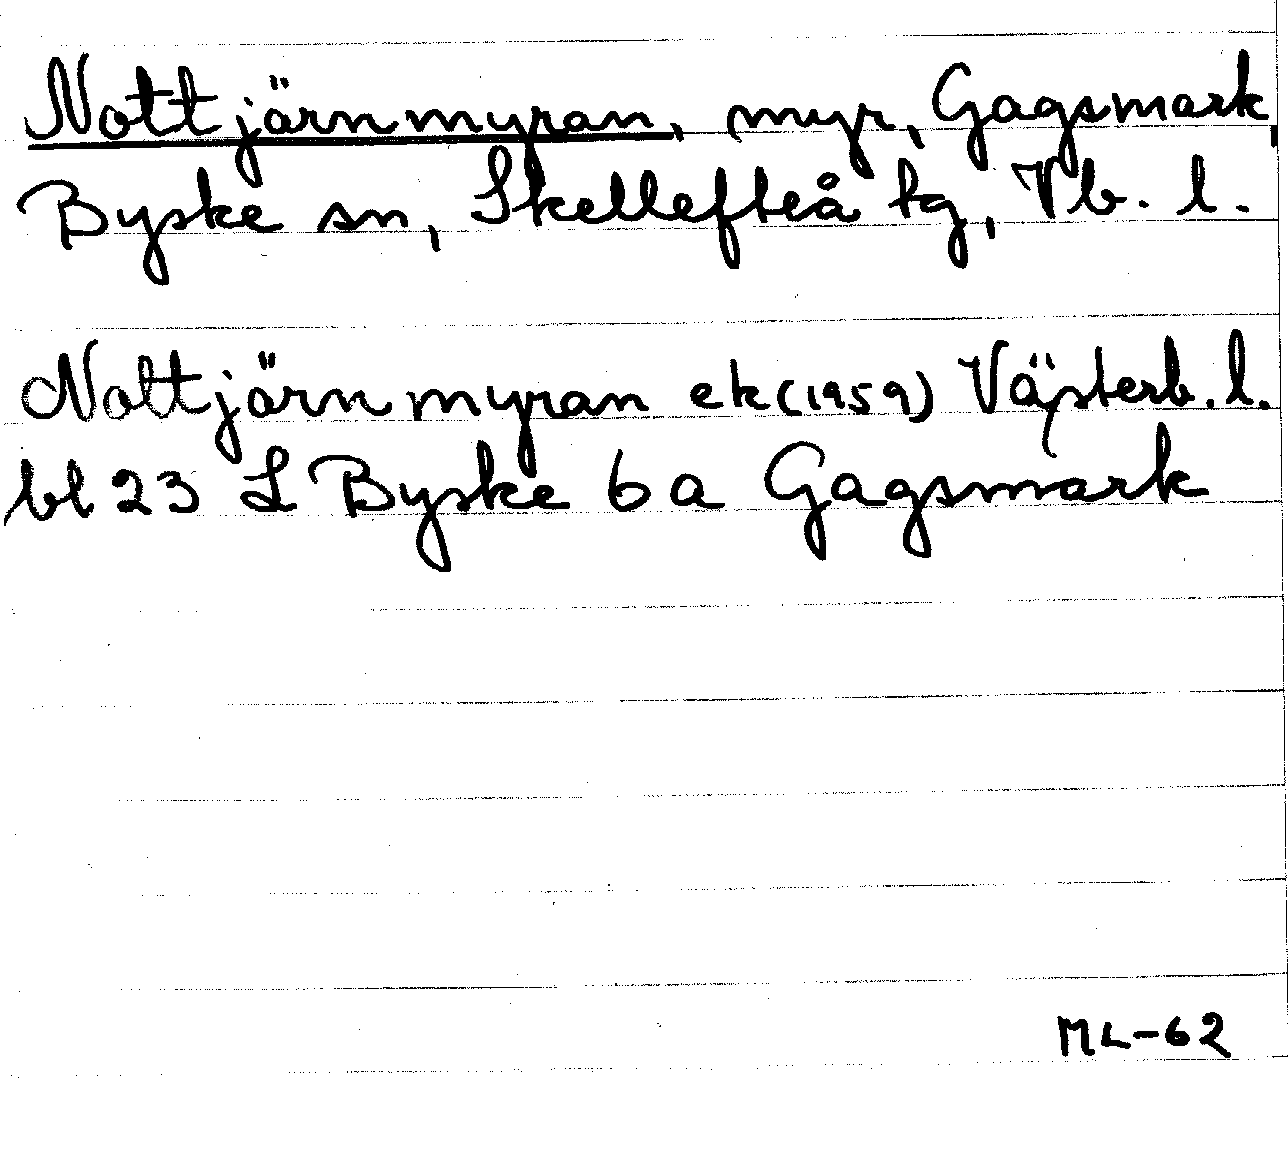 Nottjärnmyran, myr, Gagsmark,
Byske sn, Skellefteå tg, Vb. l.
Nottjärnmyran ek (1959) Västerb. l.
bl 23 L Byske 6 a Gagsmark
ML-62